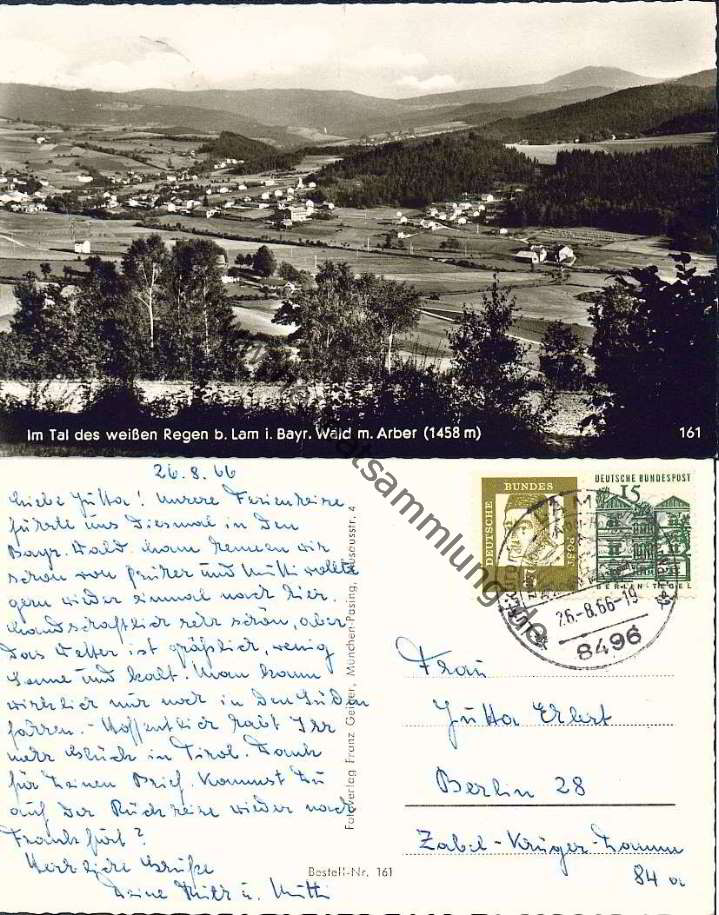 Im Tal des weißen Regen b. Lam i. Bayr. Wald m. Arber (1458 m)
161
26.8.66
Liebe Jutta! Unsere Ferienreise
führte uns diesmal in den
Bayr. Wald. Lam kennen wir
schon von früher und Mutti wollte
gern wieder einmal nach hier.
Landschaftlich sehr schön, aber
das Wetter ist gräßlich, wenig
Sonne und kalt. Man kann
wirklich nur noch in den Süden
fahren. - Hoffentlich habt Ihr
mehr Glück in Tirol. Dank
für Deinen Brief. Kommst Du
auf der Rückreise wieder nach
Frankfurt?
Herzliche Grüße
Deine u. Mutti
Fotoverlag Franz Geiger, München-Pasing, 4
Bestell-Nr. 161
DEUTSCHE BUNDES
DEUTSCHE BUNDESPOST
15
BERLIN-TEGEL
26.-8.66-19
8496
Frau
Jutta Erbert
Berlin 28
Zabel-Krüger-Damm
84 a